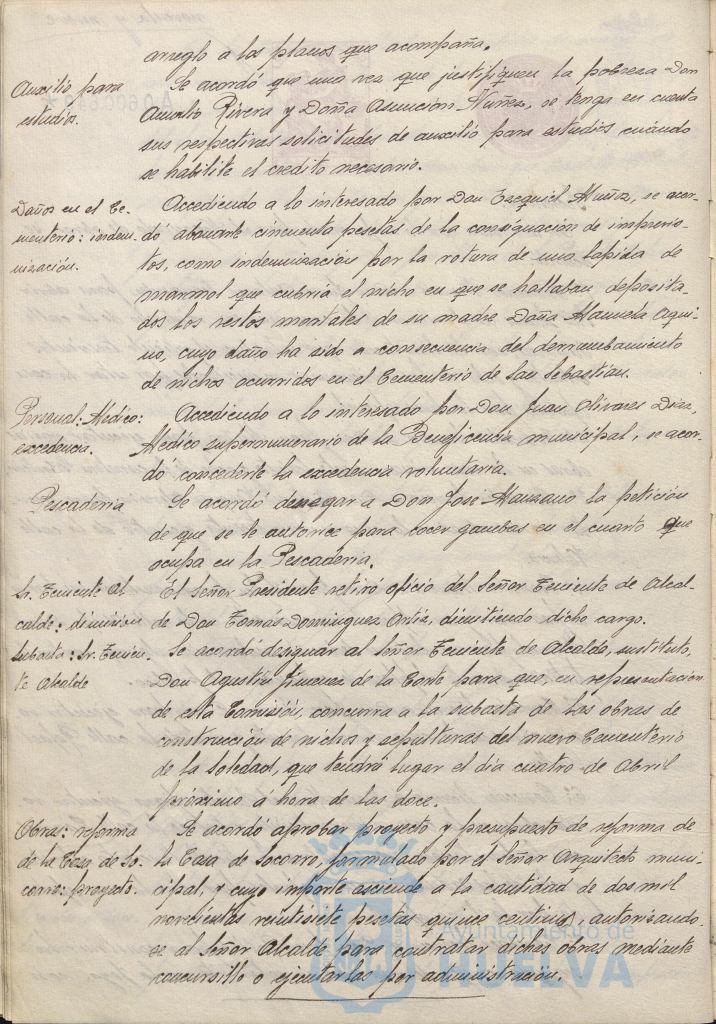 arreglo a los planos que acompaña.
Auxilio para
estudios.
Se acordó que una vez que justifiquen la pobreza Don
Aurelio Rivera y Doña Asunción Núñez, se tenga en cuenta
sus respectivas solicitudes de auxilio para estudios cuándo
se habilite el credito necesario.
Daños en el Ce-
menterio: indem-
nización.
Accediendo a lo interesado por Don Ezequiel Muñoz, se acor-
dó abonarle cincuenta pesetas de la consignación de imprevis-
tos, como indemnización por la rotura de una lapida de
marmol que cubria el nicho en que se hallaban deposita-
dos los restos mortales de su madre Doña Manuela Aqui-
no, cuyo daño ha sido a consecuencia del derrumbamiento
de nichos ocurridos en el Cementerio de San Sebastián.
Personal: Medico:
excedencia.
Accediendo a lo interesado por Don Juan Olivares Diaz,
Medico supernumerario de la Beneficencia municipal, se acor-
do concederle la excedencia voluntaria.
Pescaderia
Se acordó denegar a Don José Manzano la petición
de que se le autorice para cocer gambas en el cuarto que
ocupa en la Pescaderia.
Sr. Teniente Al
calde: dimision
El Señor Presidente retiró oficio del Señor Teniente de Alcal-
de Don Tomás Dominguez Ortiz, dimitiendo dicho cargo.
Subasta: Sr. Tenien-
te Alcalde
Se acordó designar al Señor Teniente de Alcalde, sustituto,
Don Agustin Jimenez de la Corte para que, en representación
de esta Comisión, concurra a la subasta de las obras de
construcción de nichos y sepulturas del nuevo Cementerio
de la Soledad, que tendrá lugar el día cuatro de Abril
próximo á hora de las doce.
Obras: reforma
de la Casa de So-
corro: proyecto.
Se acordó aprobar proyecto y presupuesto de reforma de
la Casa de Socorro, formulado por el Señor Arquitecto muni-
cipal, y cuyo importe asciende a la cantidad de dos mil
novecientas veintisiete pesetas quince centimos, autorizando-
se al Señor Alcalde para contratar dichas obras mediante
concursillo o ejecutarlas por administración.
Ayuntamiento de
HUELVA